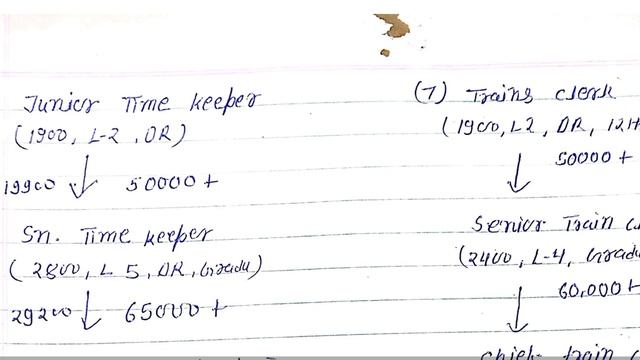 Junior Time keeper
(1900, L-2, DR)
19900 50000+
Sn. Time keeper
(2800, L 5, DR, Gradu)
29200 65000+
(7) Trains clerk
(1900, L2, DR, 12th
50000+
Senior Train
(2400, L-4, Gradu
60,000+
chief train